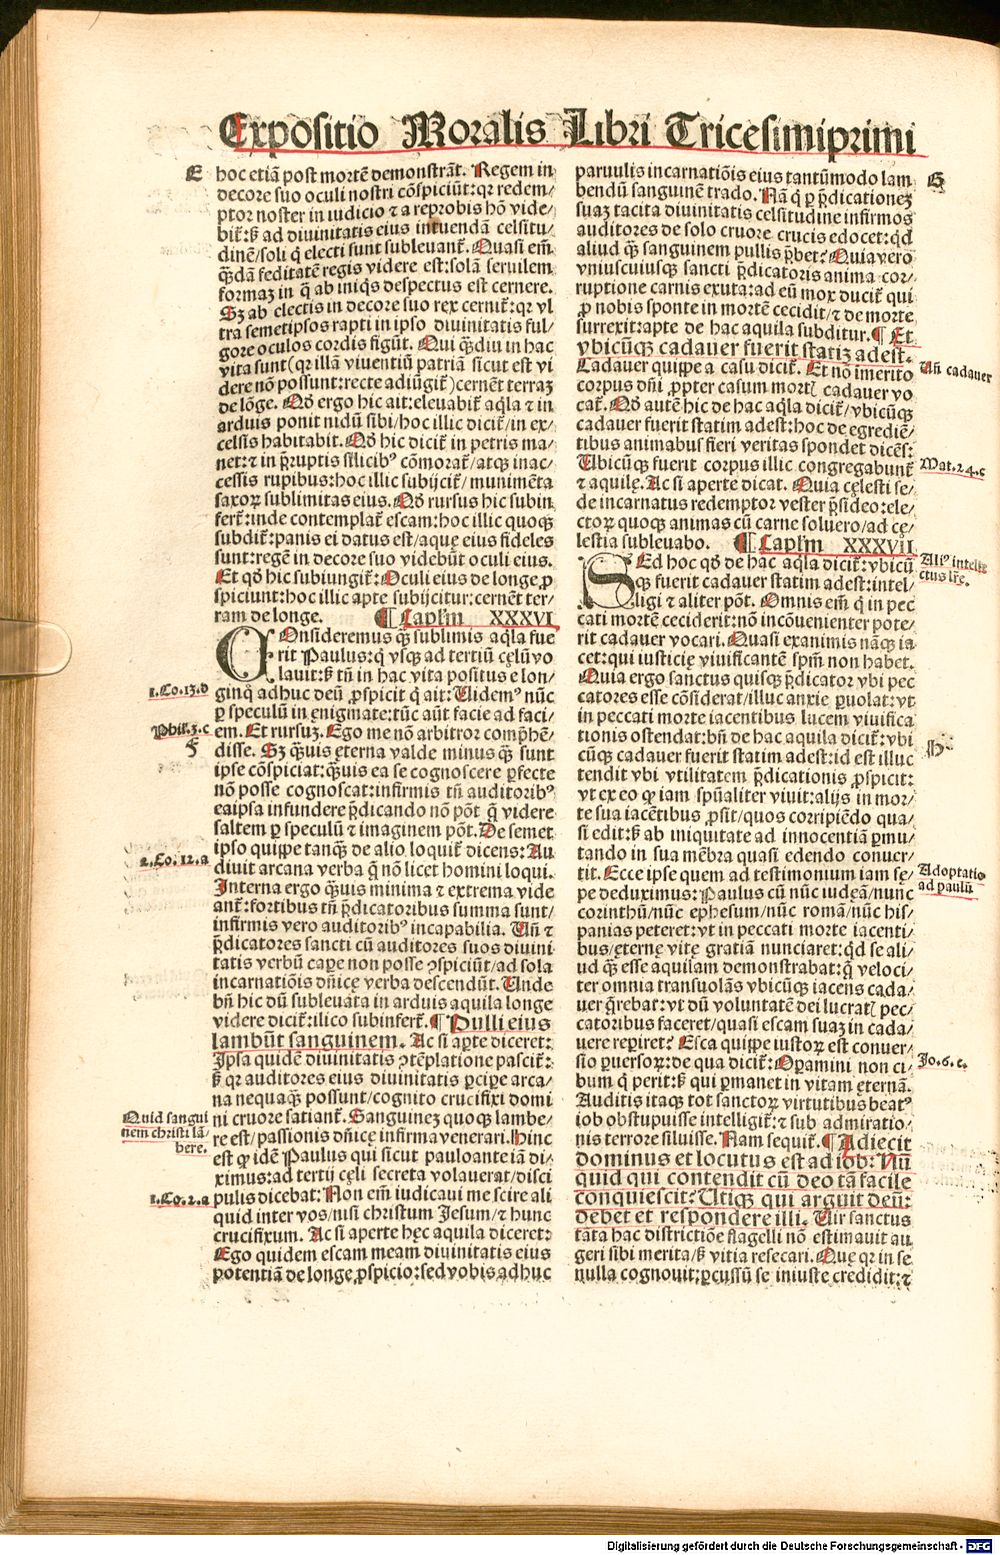 Expositio Moralis Libri Tricesimiprimi
E
hoc etiã post mortẽ demonstrãt. Regem in
decore suo oculi nostri cõspiciũt: qꝛ redem/
ptor noster in iudicio ⁊ a reprobis hõ vide/
bit̃: ß ad diuinitatis eius intuendã celsitu/
dinẽ/soli q̃ electi sunt subleuant̃. Quasi em̃
q̃dã feditatẽ regis videre est: solã seruilem
formaꝫ in q̃ ab iniq̃s despectus est cernere.
Sꝫ ab electis in decore suo rex cernit̃: qꝛ vl
tra semetipsos rapti in ipso diuinitatis ful/
gore oculos cordis figũt. Qui q̃diu in hac
vita sunt (qꝛ illã viuentiũ patriã sicut est vi
dere nõ possunt: recte adiũgit̃) cernẽt terraꝫ
de lõge. Qõ ergo hic ait: eleuabit̃ aq̃la ⁊ in
arduis ponit nidũ sibi/hoc illic dicit̃/in ex/
celsis habitabit. Qõ hic dicit̃ in petris ma/
net: ⁊ in p̃ruptis silicibꝰ cõmorat̃/atqꝫ inac/
cessis rupibus: hoc illic subijcit̃/munimẽta
saxoꝝ sublimitas eius. Qõ rursus hic subin
fert̃: inde contemplat̃ escam: hoc illic quoqꝫ
subdit̃: panis ei datus est/aquę eius fideles
sunt: regẽ in decore suo videbũt oculi eius.
Et qõ hic subiungit̃: Oculi eius de longe ꝓ
spiciunt: hoc illic apte subijcitur: cernẽt ter/
ram de longe. ¶ Capl'm XXXVI
COnsideremus qꝫ sublimis aq̃la fue
rit Paulus: q̃ vsqꝫ ad tertiũ cęlũ vo
lauit: ß tñ in hac vita positus e lon/
ginq̃ adhuc deũ ꝓspicit q̃ ait: Uidemꝰ nũc
ꝑ speculũ in ęnigmate: tũc aũt facie ad faci/
em. Et rursuꝫ. Ego me nõ arbitror comp̃hẽ/
disse. Sꝫ q̃uis ęterna valde minus qꝫ sunt
ipse cõspiciat: q̃uis ea se cognoscere ꝑfecte
nõ posse cognoscat: infirmis tñ auditoribꝰ
eaipsa infundere p̃dicando nõ põt q̃ videre
saltem ꝑ speculũ ⁊ imaginem põt. De semet
ipso quippe tanqꝫ de alio loquit̃ dicens: Au
diuit arcana verba q̃ nõ licet homini loqui.
Interna ergo q̃uis minima ⁊ extrema vide
ant̃: fortibus tñ p̃dicatoribus summa sunt/
infirmis vero auditoribꝰ incapabilia. Uñ ⁊
p̃dicatores sancti cũ auditores suos diuini
tatis verbũ caꝑe non posse ꝯspiciũt/ad sola
incarnatiõis dñicę verba descendũt. Unde
bñ hic dũ subleuata in arduis aquila longe
videre dicit̃: ilico subinfert̃. ¶ Pulli eius
lambũt sanguinem. Ac si aꝑte diceret:
Ipsa quidẽ diuinitatis ꝯtẽplatione pascit̃:
ß qꝛ auditores eius diuinitatis ꝑciꝑe arca/
na nequaqꝫ possunt/cognito crucifixi domi
ni cruore satiant̃. Sanguineꝫ quoqꝫ lambe/
re est/passionis dñicę infirma venerari. Hinc
est qꝙ idẽ Paulus qui sicut pauloante iã di/
ximus: ad tertij cęli secreta volauerat/disci
pulis dicebat: Non em̃ iudicaui me scire ali
quid inter vos/nisi christum Jesum/⁊ hunc
crucifixum. Ac si aperte hęc aquila diceret:
Ego quidem escam meam diuinitatis eius
potentiã de longe ꝓspicio: sed vobis adhuc
1.Co.13.d
Phil.3.c
F
2.Co.12.a
Quid sangui
nem christi lã/
bere.
1.Co.2.a
paruulis incarnatiõis eius tantũmodo lam
bendũ sanguinẽ trado. Nã q̃ ꝑ p̃dicationeꝫ
suaꝫ tacita diuinitatis celsitudine infirmos
auditores de solo cruore crucis edocet: qd̃
aliud qꝫ sanguinem pullis p̃bet? Quia vero
vniuscuiusqꝫ sancti p̃dicatoris anima cor/
ruptione carnis exuta: ad eũ mox ducit̃ qui
ꝓ nobis sponte in mortẽ cecidit/⁊ de morte
surrexit: apte de hac aquila subditur. ¶ Et
vbicũqꝫ cadauer fuerit statiꝫ adest.
Cadauer quippe a casu dicit̃. Et nõ imerito
corpus dñi ꝓpter casum mortꝭ cadauer vo
cat̃. Qõ autẽ hic de hac aq̃la dicit̃/vbicũqꝫ
cadauer fuerit statim adest: hoc de egrediẽ/
tibus animabus fieri veritas spondet dicẽs:
Ubicũqꝫ fuerit corpus illic congregabunt̃
⁊ aquilę. Ac si aperte dicat. Quia cęlesti se/
de incarnatus redemptor vester p̃sideo: ele/
ctoꝝ quoqꝫ animas cũ carne soluero/ad cę/
lestia subleuabo. ¶ Capl'm XXXVII
SEd hoc qõ de hac aq̃la dicit̃: vbicũ
qꝫ fuerit cadauer statim adest: intel/
ligi ⁊ aliter põt. Omnis em̃ q̃ in pec
cati mortẽ ceciderit: nõ incõuenienter pote/
rit cadauer vocari. Quasi exanimis nãqꝫ ia
cet: qui iusticię viuificantẽ spm̃ non habet.
Quia ergo sanctus quisqꝫ p̃dicator vbi pec
catores esse cõsiderat/illuc anxie ꝑuolat: vt
in peccati morte iacentibus lucem viuifica
tionis ostendat: bñ de hac aquila dicit̃: vbi
cũqꝫ cadauer fuerit statim adest: id est illuc
tendit vbi vtilitatem p̃dicationis ꝓspicit:
vt ex eo qꝙ iam spũaliter viuit: alijs in mor/
te sua iacẽtibus ꝓsit/quos corripiẽdo qua/
si edit: ß ab iniquitate ad innocentiã ꝑmu/
tando in sua mẽbra quasi edendo conuer/
tit. Ecce ipse quem ad testimonium iam sę/
pe deduximus: Paulus cũ nũc iudęã/nunc
corinthũ/nũc ephesum/nũc romã/nũc his/
panias peteret: vt in peccati morte iacenti/
bus/ęternę vitę gratiã nunciaret: qd̃ se ali/
ud qꝫ esse aquilam demonstrabat: q̃ veloci/
ter omnia transuolãs vbicũqꝫ iacens cada/
uer q̃rebat: vt dũ voluntatẽ dei lucratꝭ pec/
catoribus faceret/quasi escam suaꝫ in cada/
uere reꝑiret? Esca quippe iustoꝝ est conuer/
sio ꝑuersoꝝ: de qua dicit̃: Oꝑamini non ci/
bum q̃ perit: ß qui ꝑmanet in vitam ęternã.
Auditis itaqꝫ tot sanctoꝝ virtutibus beatꝰ
iob obstupuisse intelligit̃: ⁊ sub admiratio/
nis terrore siluisse. Nam sequit̃. ¶ Adiecit
dominus et locutus est ad iob: Nũ
quid qui contendit cũ deo tã facile
conquiescit? Utiqꝫ qui arguit deũ:
debet et respondere illi. Uir sanctus
tãta hac districtiõe flagelli nõ estimauit au
geri sibi merita/ß vitia resecari. Quę qꝛ in se
nulla cognouit: ꝑcussũ se iniuste credidit: ⁊
G
Uñ cadauer
Mat.24.c
Aliꝰ intelle
ctus lr̃e.
H
Adoptatio
ad paulũ
Jo.6.c.
Digitalisierung gefördert durch die Deutsche Forschungsgemeinschaft - DFG